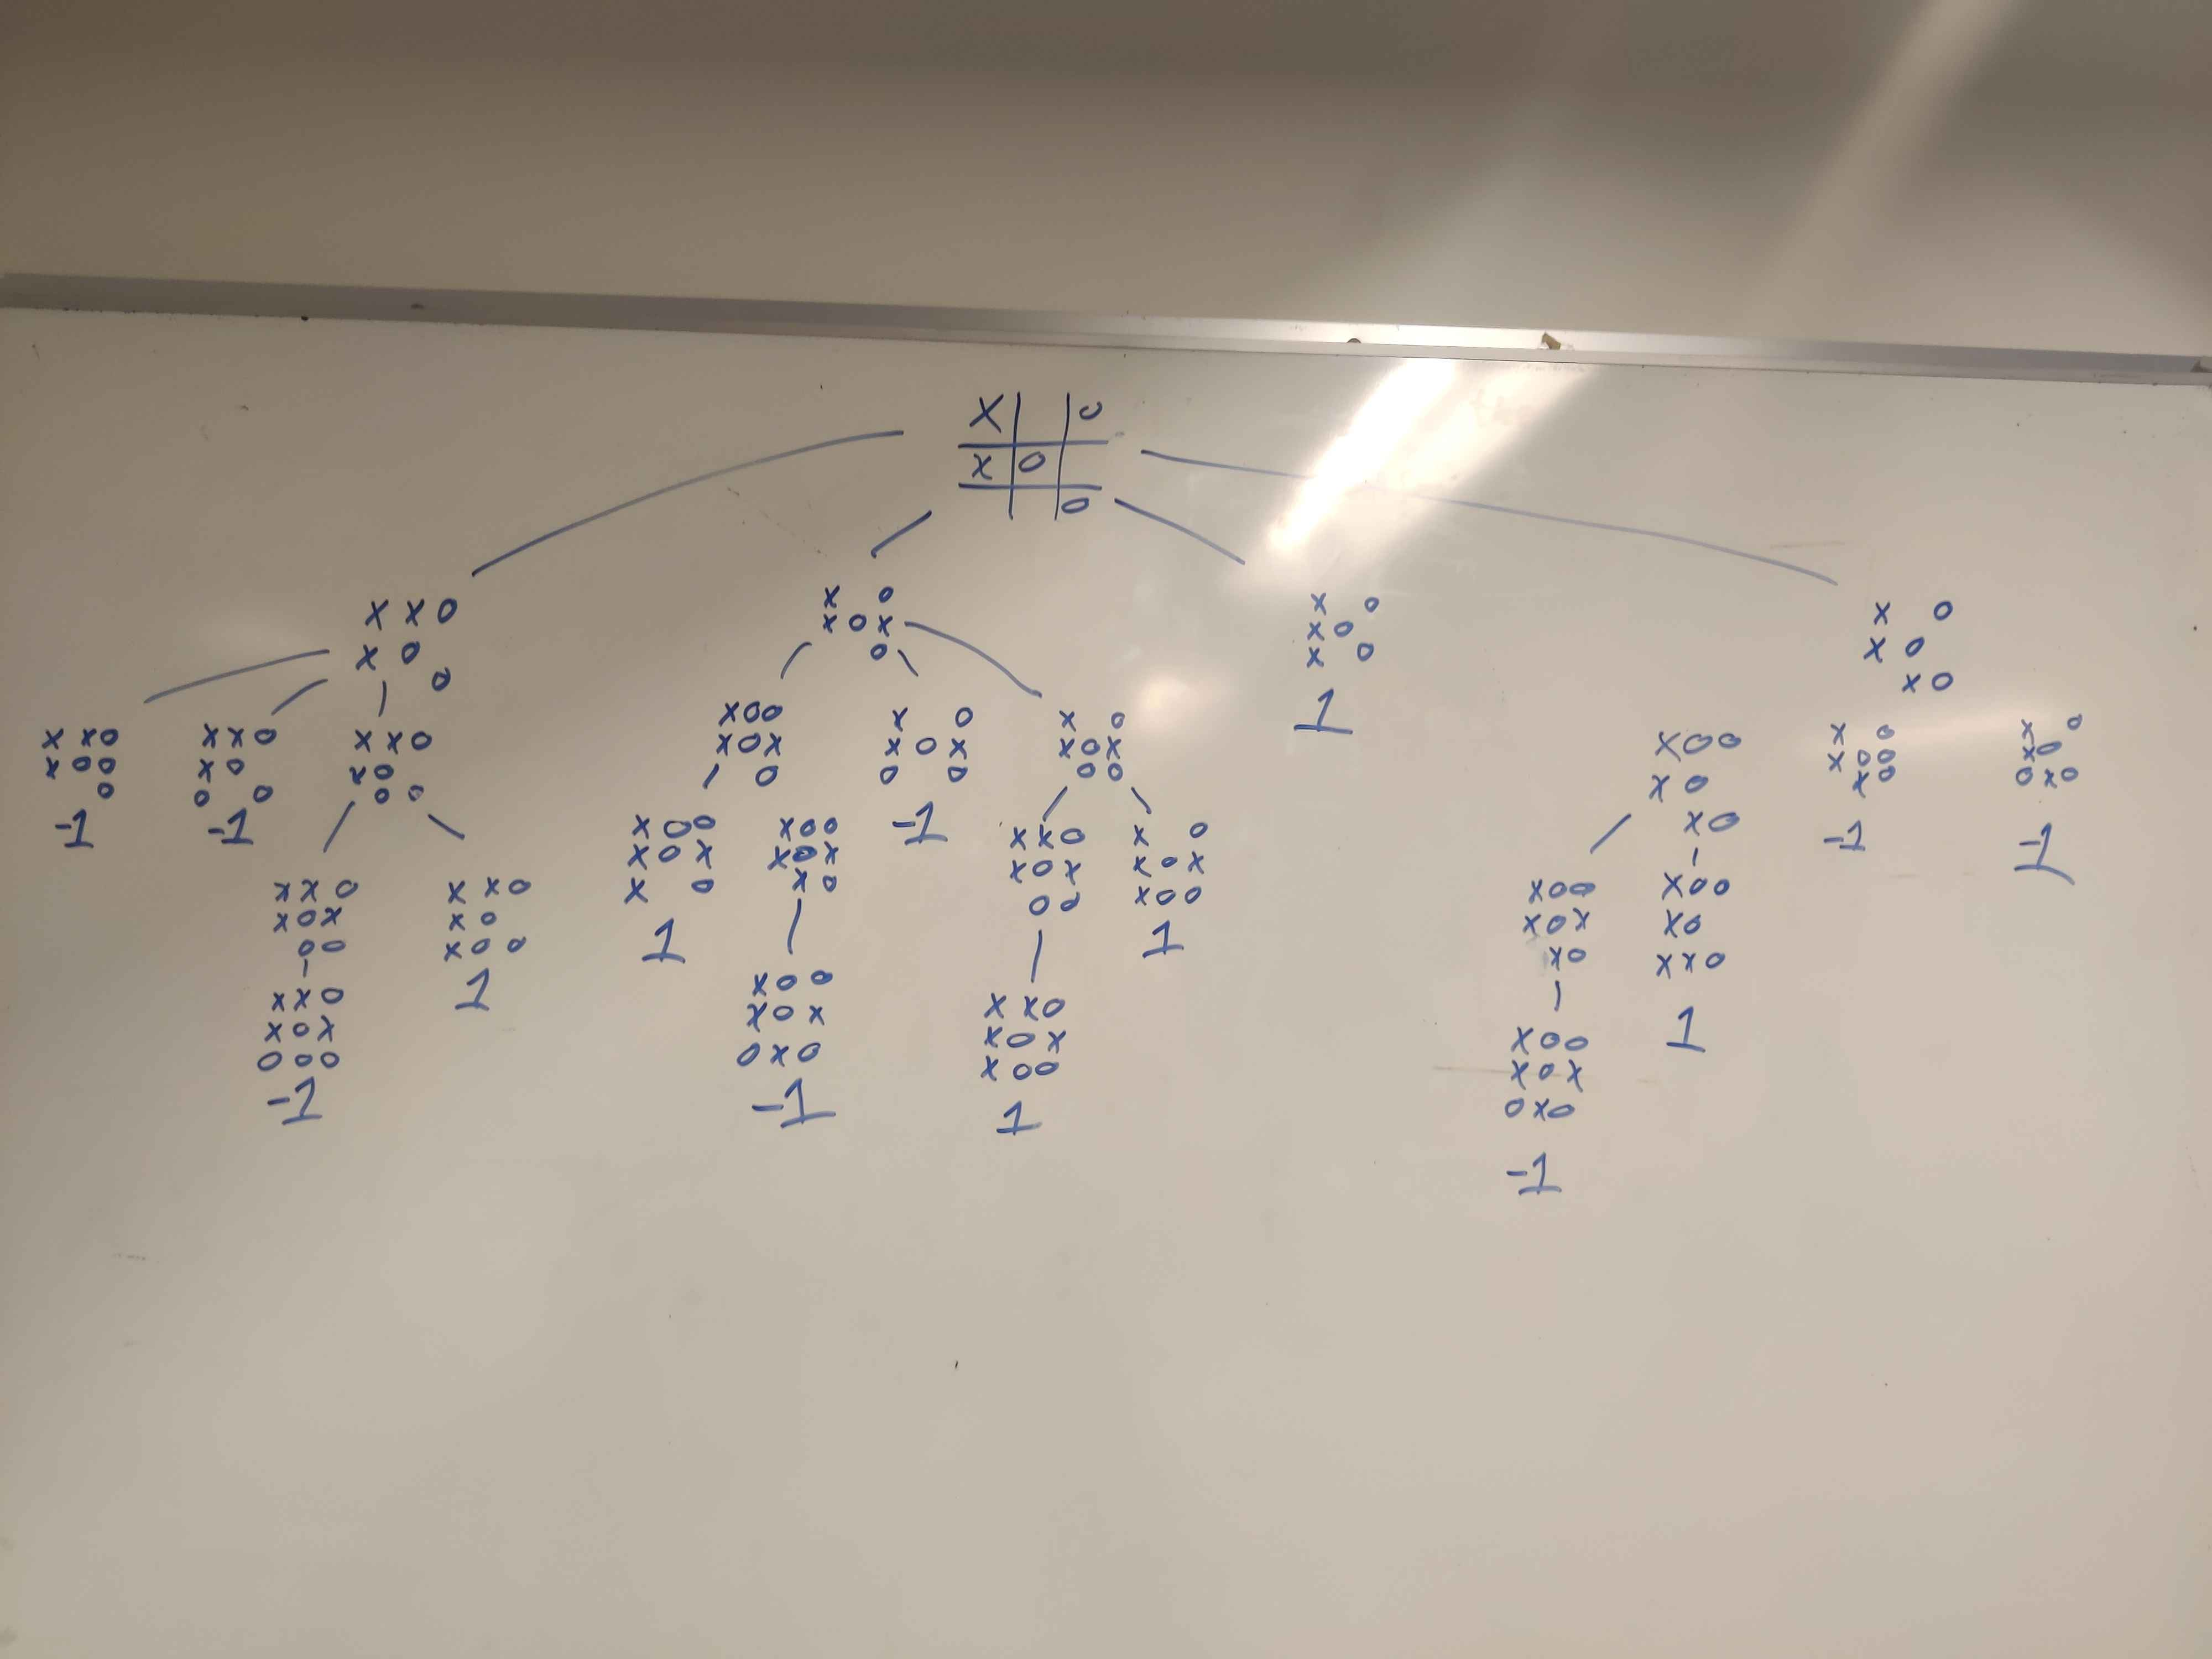 X O
X O
O
X X O
X O
O
X O
X O X
O
X O
X O
X O
1
X O
X O
X O
X X O
X O O
O
-1
X X O
X O
O O
-1
X X O
X O
O O
X X O
X O X
O O
X X O
X O X
O O O
-1
X X O
X O
X O O
1
X O O
X O X
O
X O O
X O X
X O
1
X O O
X O X
X O
X O O
X O X
O X O
-1
X O
X O X
O O
-1
X O
X O X
O O
X X O
X O X
O O
X X O
X O X
X O O
1
X O
X O X
X O O
1
X O O
X O
X O
X O O
X O X
X O
X O O
X O X
O X O
-1
X O O
X O
X X O
1
X O
X O O
X O
-1
X O
X O
O X O
-1